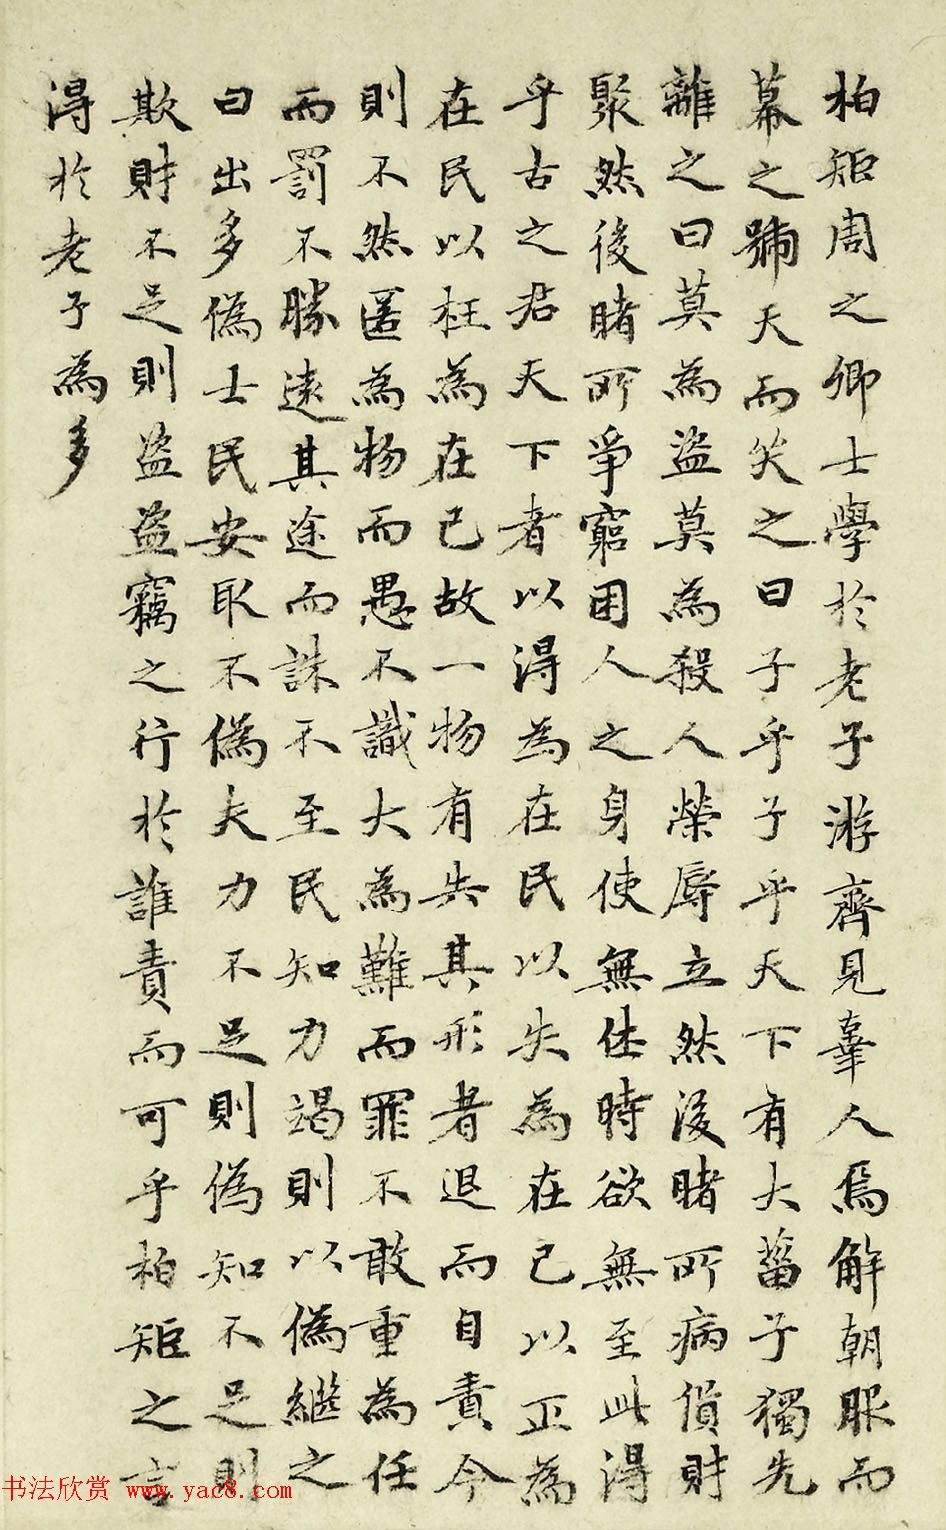 柏矩周之卿士學於老子游齊見辜人焉解朝服而
幕之號天而哭之曰子乎子乎天下有大菑子獨先
離之曰莫為盜莫為殺人榮辱立然後睹所病貨財
聚然後睹所爭窮困人之身使無休時欲無至此得
乎古之君天下者以得為在民以失為在己以正為
在民以枉為在己故一物有失其形者退而自責今
則不然匿為物而愚不識大為難而罪不敢重為任
而罰不勝遠其途而誅不至民知力竭則以偽繼之
日出多偽士民安取不偽夫力不足則偽知不足則
欺財不足則盜盜竊之行於誰責而可乎柏矩之言
得於老子為多
书法欣赏 www.yac8.com